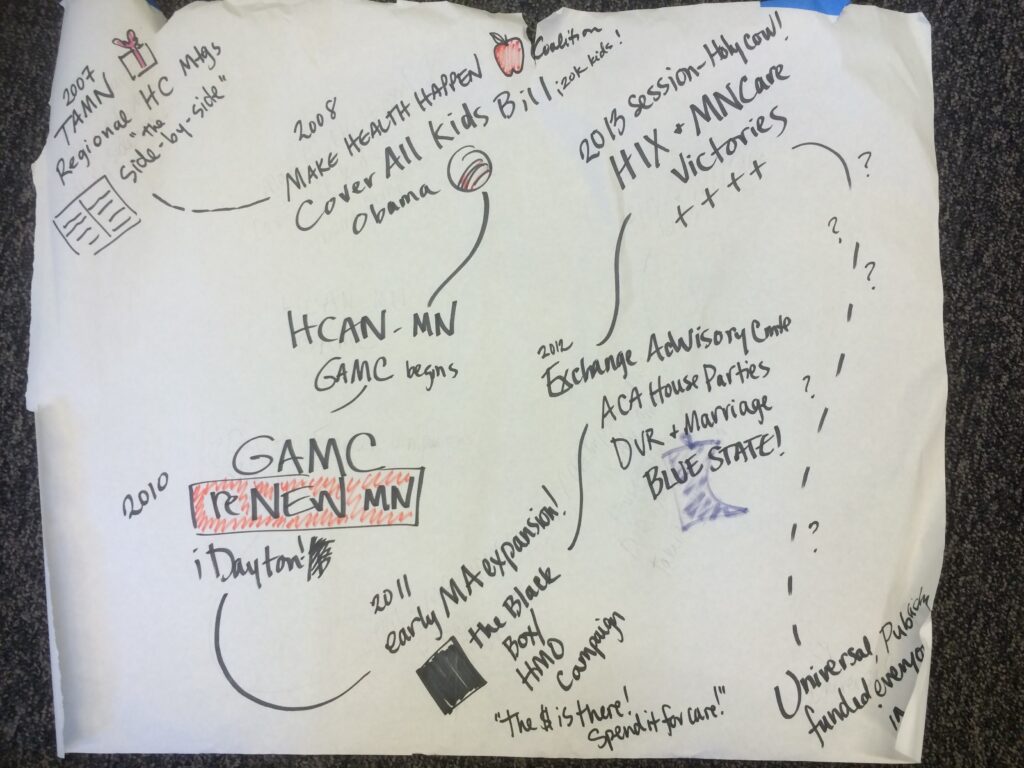 2007
TAMN
Regional HC Mtgs
"the
side-by-side"
2008
MAKE HEALTH HAPPEN Coalition
Cover All Kids Bill ¡20K kids!
Obama
HCAN-MN
GAMC begns
2010
GAMC
reNEW MN
¡Dayton!
2011
early MA expansion!
the Black
Box/
HMO
Campaign
"The $ is there!
Spend it for care!"
2012
Exchange Advisory Cmte
ACA House Parties
DVR + Marriage
BLUE STATE!
2013 Session-Holy cow!
HIX + MNCare
Victories
++++
?
?
?
?
?
Universal, Publicly
funded, everyone
in